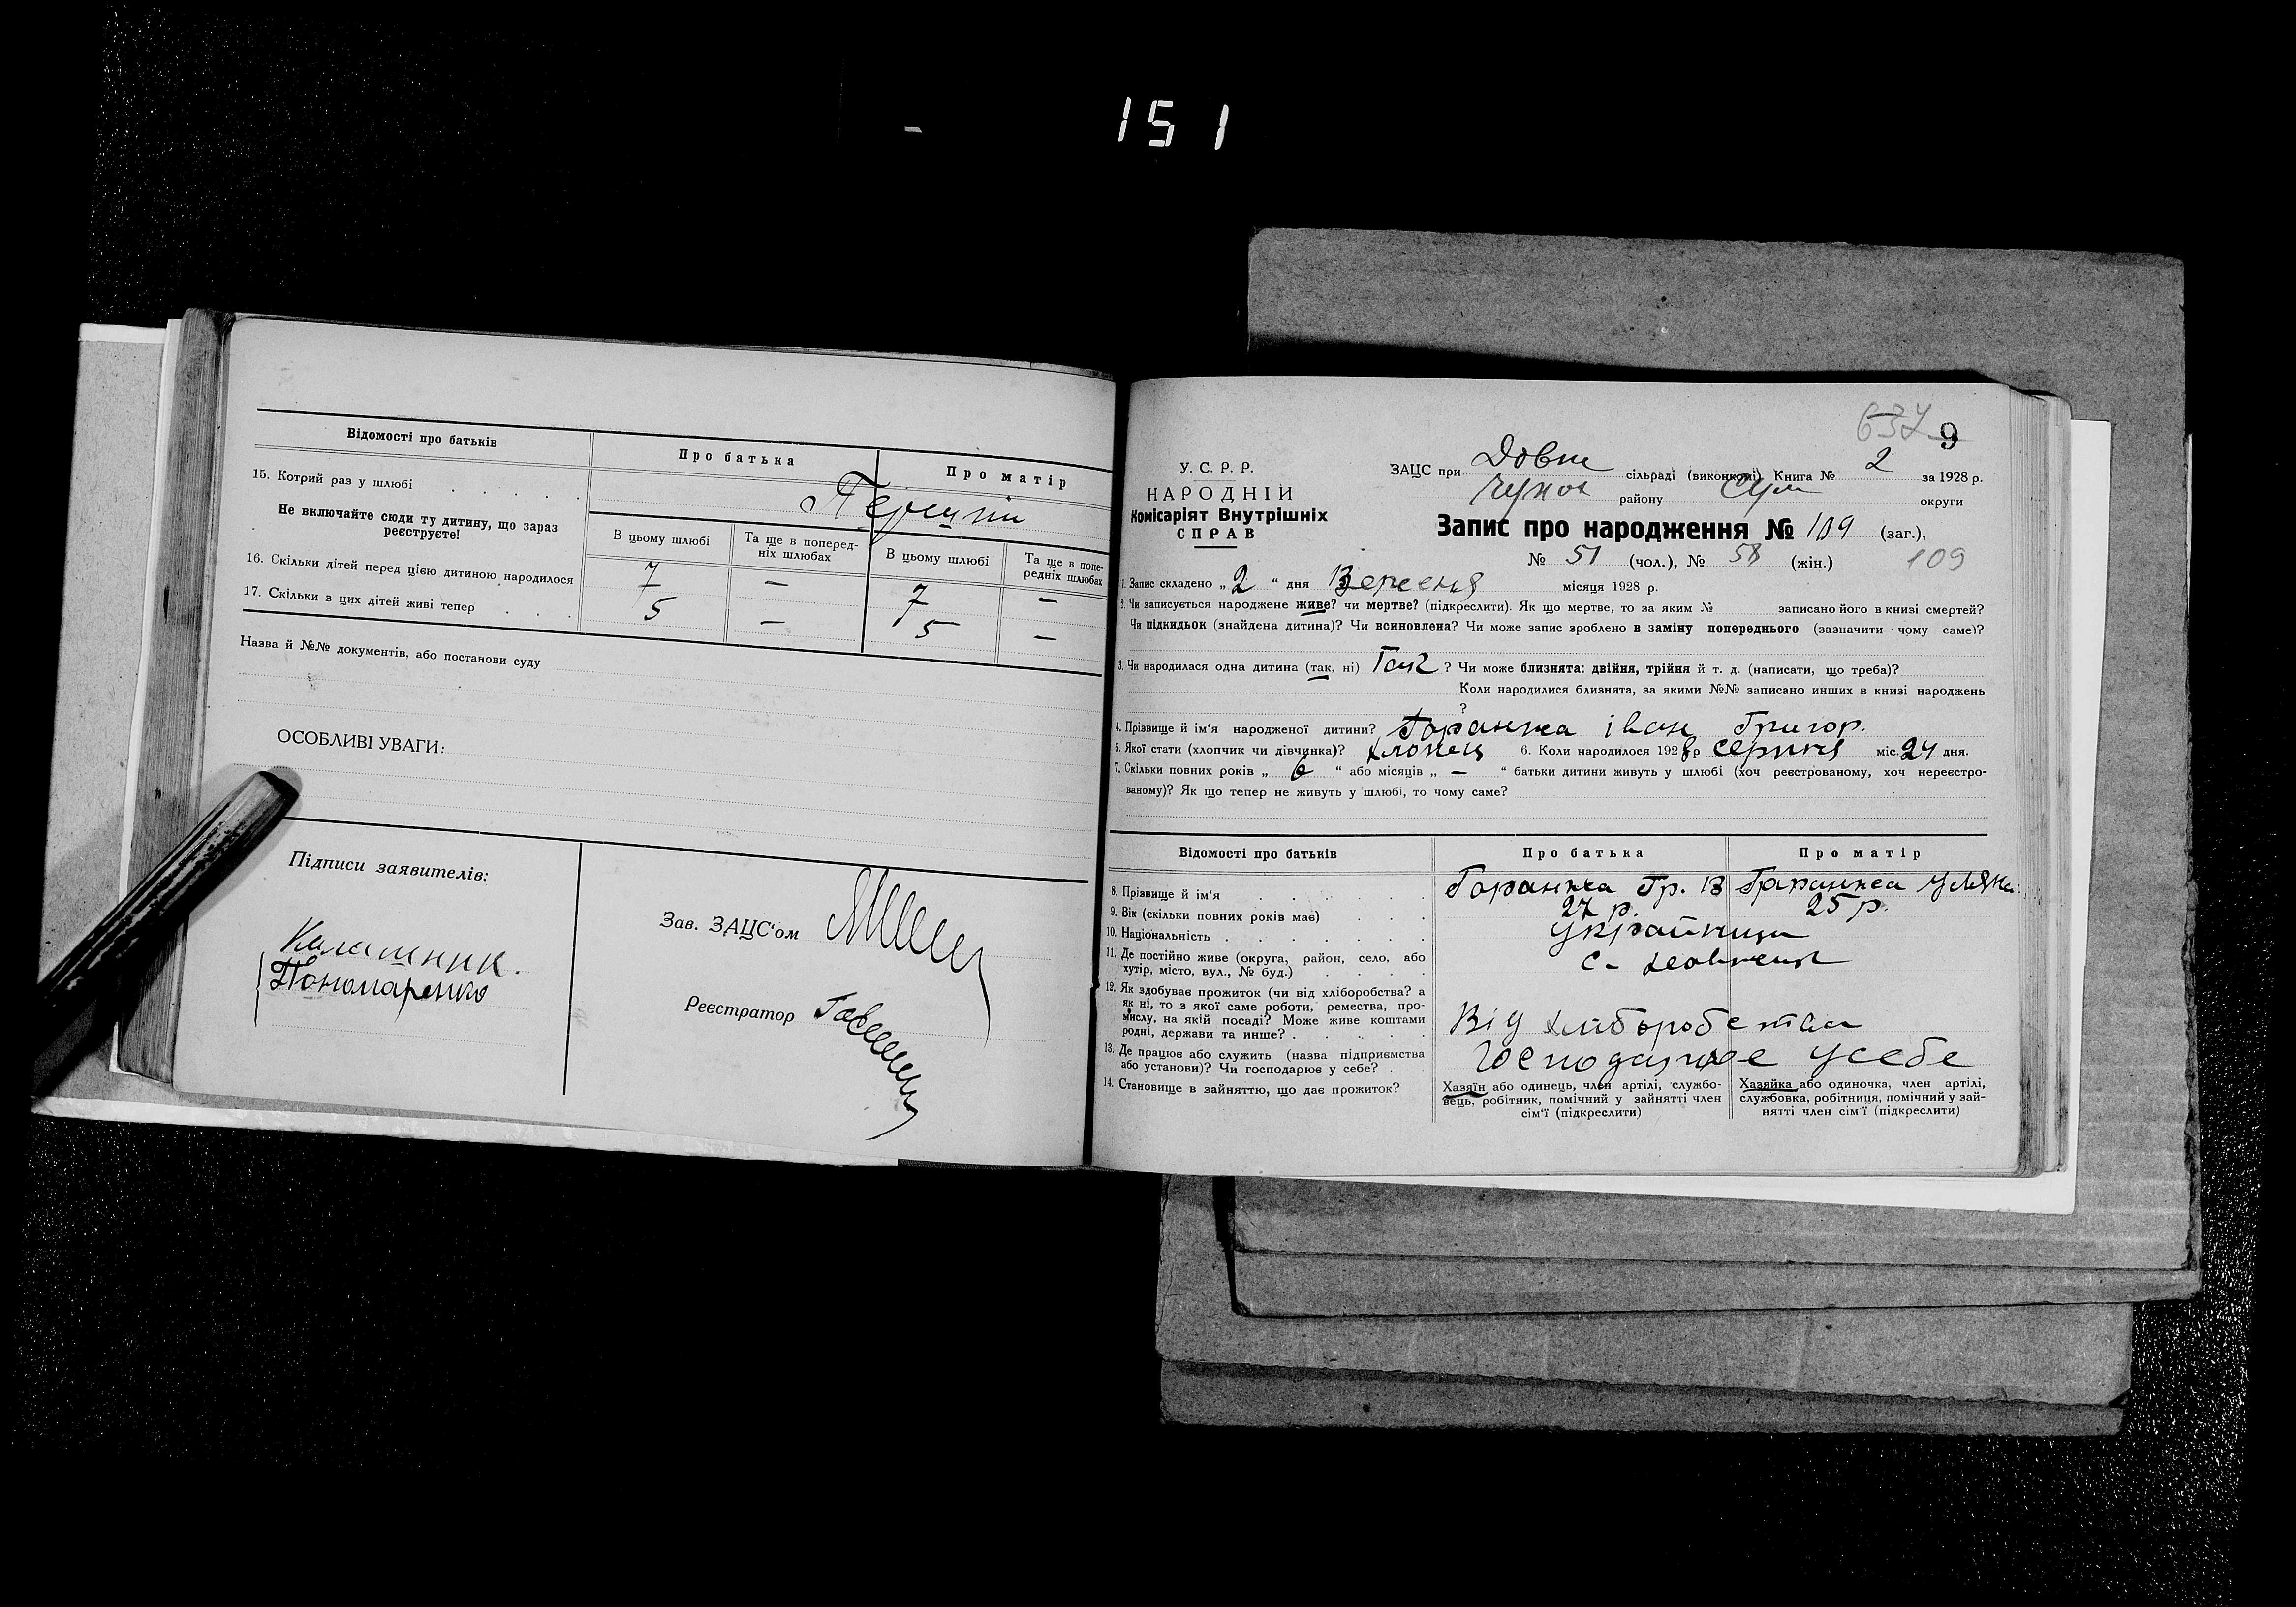 151
Відомості про батьків
Про батька
Про матір
15. Котрий раз у шлюбі
Не включайте сюди ту дитину, що зараз
реєструєте!
В цьому шлюбі
Та ще в поперед-
ніх шлюбах
В цьому шлюбі
Та ще в попе-
редніх шлюбах
16. Скільки дітей перед цією дитиною народилося 7 — 7 —
17. Скільки з цих дітей живі тепер 5 — 5 —
Назва й №№ документів, або постанови суду
ОСОБЛИВІ УВАГИ:
Підписи заявителів:
Калашник.
Пономаренко
Зав. ЗАЦС'ом
Реєстратор
637 9
У. С. Р. Р.
НАРОДНІЙ
Комісаріят Внутрішніх
СПРАВ
ЗАЦС при Довж сільраді (виконкомі) Книга № 2 за 1928 р.
району Сум округи
Запис про народження № 109 (заг.),
№ 51 (чол.), № 58 (жін.) 109
1. Запис складено „ 2 “ дня Вересня місяця 1928 р.
2. Чи записується народжене живе? чи мертве? (підкреслити). Як що мертве, то за яким № записано його в книзі смертей?
Чи підкидьок (знайдена дитина)? Чи всиновлена? Чи може запис зроблено в заміну попереднього (зазначити чому саме)?
3. Чи народилася одна дитина (так, ні) Так ? Чи може близнята: двійня, трійня й т. д. (написати, що треба)?
Коли народилися близнята, за якими №№ записано инших в книзі народжень
?
4. Прізвище й ім'я народженої дитини? Гаранжа іван Григор.
5. Якої стати (хлопчик чи дівчинка)? хлопец 6. Коли народилося 1928 р серпня міс. 24 дня.
7. Скільки повних років „ 6 “ або місяців „ — “ батьки дитини живуть у шлюбі (хоч реєстрованому, хоч нереєстро-
ваному)? Як що тепер не живуть у шлюбі, то чому саме?
Відомості про батьків
Про батька
Про матір
8. Прізвище й ім'я Гаранжа Гр. В Гаранжа
9. Вік (скільки повних років має) 27 р. 25 р.
10. Національність Українци
11. Де постійно живе (округа, район, село, або
хутір, місто, вул., № буд.)
12. Як здобуває прожиток (чи від хліборобства? а
як ні, то з якої саме роботи, ремества, про-
мислу, на якій посаді? Може живе коштами
родні, держави та инше?
Від хліборобства
13. Де працює або служить (назва підприємства
або установи)? Чи господарює у себе?
Господарює усебе
14. Становище в зайняттю, що дає прожиток?
Хазяїн або одинець, член артілі, службо-
вець, робітник, помічний у зайнятті член
сім'ї (підкреслити)
Хазяйка або одиночка, член артілі,
службовка, робітниця, помічний у зай-
нятті член сім'ї (підкреслити)